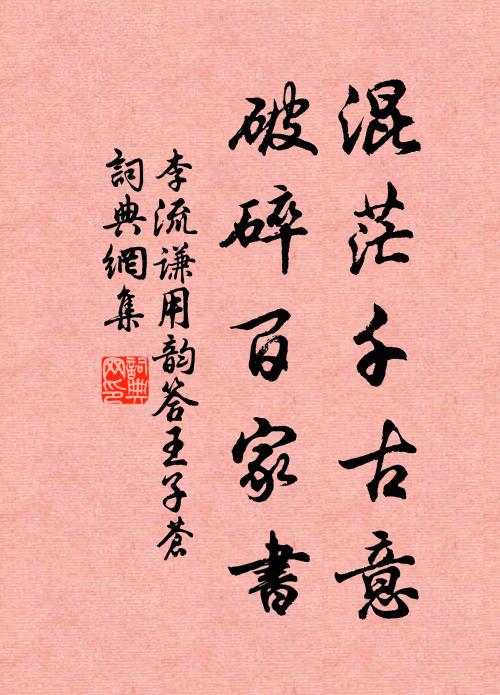 混茫千古意
破碎百家書
李流謙用韵答王子蒼
詞典網集
詞典
网印